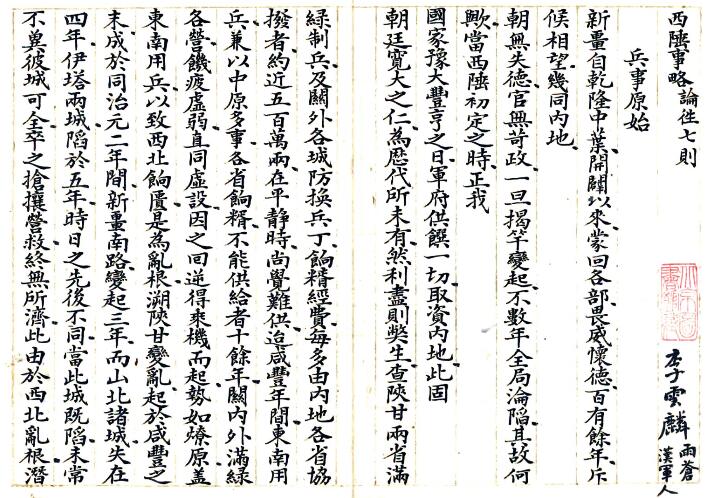 西陲事略論往七則
李雲麟雨蒼漢軍人
兵事原始
新畺自乾隆中葉開闢以來蒙回各部畏威懷德百有餘年斥
候相望幾同内地
朝無失德官無苛政一旦揭竿變起不數年全局淪陷其故何
歟當西陲初定之時正我
國家豫大豐亨之日軍府供饌一切取資内地此固
朝廷寬大之仁為歷代所未有然利盡則獘生查陝甘兩省滿
綠制兵及關外各城防換兵丁餉糈經費每多由内地各省協
撥者約近五百萬兩在平靜時尚覺難供迨咸豐年間東南用
兵兼以中原多事各省餉糈不能供給者十餘年關内外滿綠
各營饑疲虛弱直同虛設因之回逆得乘機而起勢如燎原蓋
東南用兵以致西北餉匱是為亂根溯陝甘變亂起於咸豐之
末成於同治元二年間新畺南路變起三年而山北諸城失在
四年伊塔兩城陷於五年時日之先後不同當此城既陷未常
不冀彼城可全卒之搶攘營救終無所濟此由於西北亂根潛